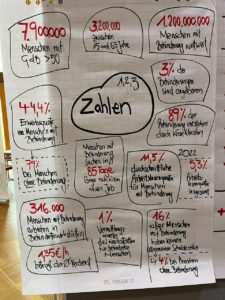 7.900.000
Menschen mit
GdB > 50
3.200.000
zwischen
15 und 65 Jahre
1.200.000.000
Menschen mit
Behinderung weltweit
123
Zahlen
3% der
Behinderungen
sind angeboren
44,4%
Erwerbsquote
von Menschen mit
Behinderung
89% der
Behinderung entstehen
durch Krankheiten
79%
bei Menschen
ohne Behinderung
Menschen
mit Behinderung
suchen im Ø
85 Tage
länger nach einem
neuen Job
11,5%
durchschnittliche
Arbeitslosenquote
für Menschen mit
Behinderung
2022
5,3%
Arbeits-
losenquote
316.000
Menschen mit Behinderung
arbeiten in
Behindertenwerkstätten
1,35€/h
beträgt der Ø Verdienst
1%
16%
aller Menschen
mit Behinderung
haben keinen
allgemeinen Schulabschluss
4% bei Menschen
ohne Behinderung
neuland